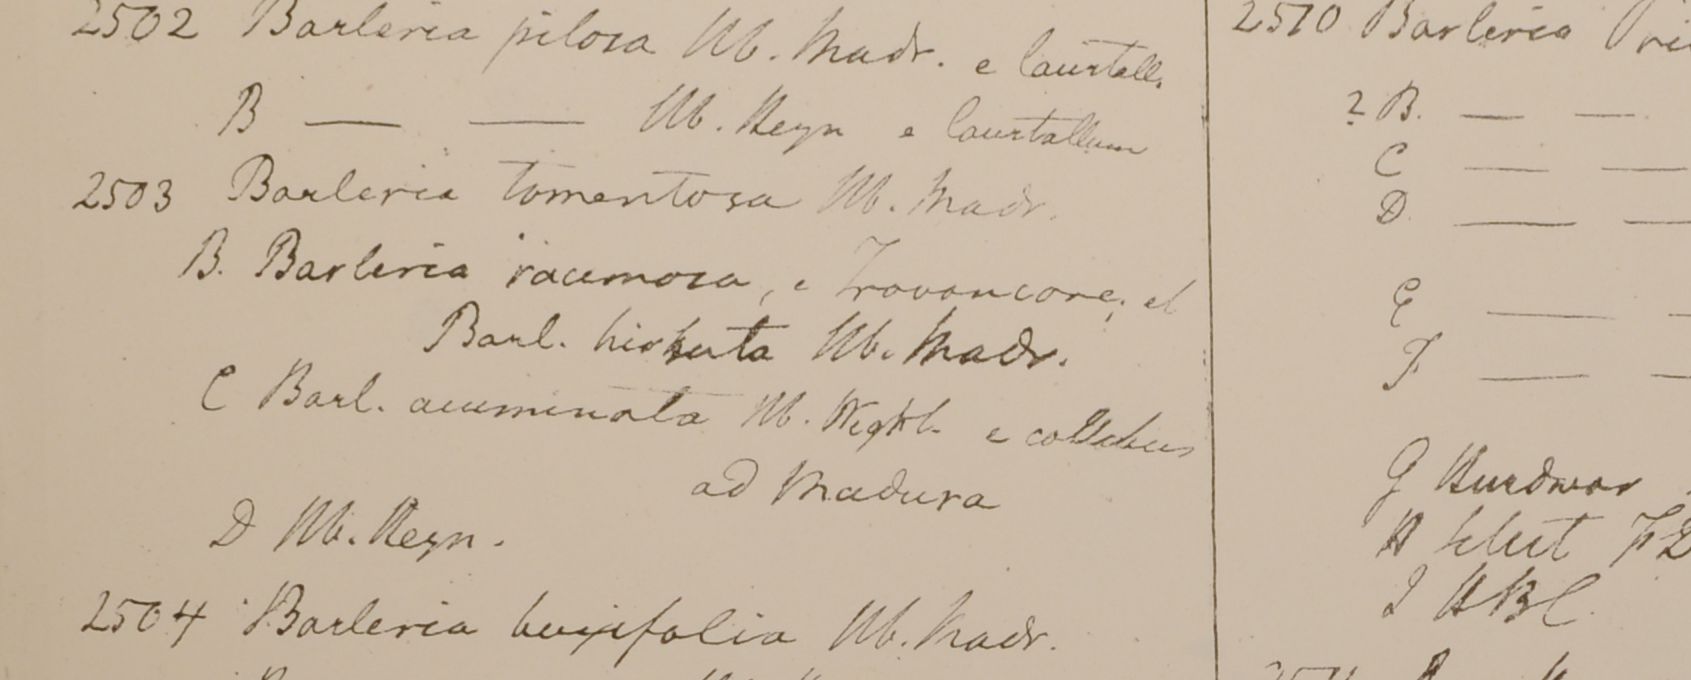 2502 Barleria pilosa Hb. Madr. e Courtall.
B — — Hb. Heyn e Courtallum
2503 Barleria tomentosa Hb. Madr.
B. Barleria racemosa, e Travancore; et
Barl. hirsuta Hb. Madr.
C Barl. acuminata Hb. Wight. e collibus
ad Madura
D Hb. Heyn.
2504 Barleria buxifolia Hb. Madr.
2510 Barleria Pri
? B. — —
C — —
D. — —
E — —
F — —
G Hurdwar
H Silhet FD
I HBC